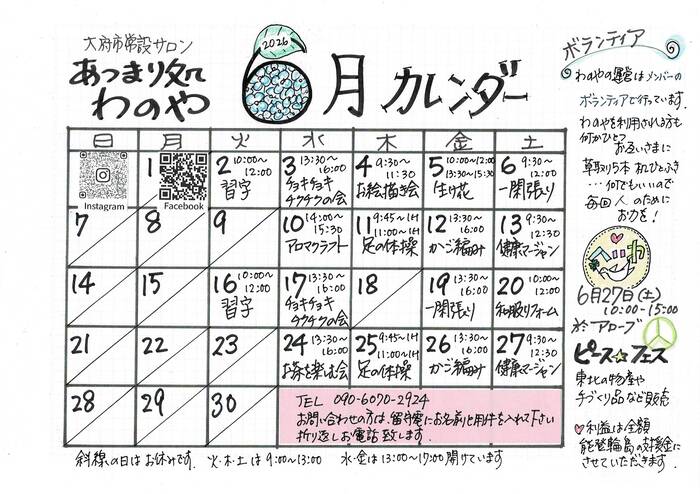 大府市常設サロン
あつまり処
わのや
2026
6月カレンダー
日 月 火 水 木 金 土
Instagram
1
Facebook
2 10:00~12:00
習字
3 13:30~16:00
チョキチョキ
チクチクの会
4 9:30~11:30
お絵描き会
5 10:00~12:00
13:30~15:30
生け花
6 9:30~12:00
一閑張り
7
8
9
10 14:00~15:30
アロマクラフト
11 9:45~1H
11:00~1H
足の体操
12 13:30~16:00
かご編み
13 9:30~12:30
健康マージャン
14
15
16 10:00~12:00
習字
17 13:30~16:00
チョキチョキ
チクチクの会
18
19 13:30~16:00
一閑張り
20 10:00~12:00
和服リフォーム
21
22
23
24 13:30~16:00
お茶を楽む会
25 9:45~1H
11:00~1H
足の体操
26 13:30~16:00
かご編み
27 9:30~12:30
健康マージャン
28
29
30
TEL 090-6070-2924
お問い合わせの方は、留守電にお名前と用件を入れて下さい
折り返しお電話致します。
斜線の日はお休みです。 火・木・土は9:00~13:00 水・金は13:00~17:00開けています
ボランティア
わのやの運営はメンバーの
ボランティアで行っています。
わのやを利用される方も
何かひとつ
お互いさまに
草取り5本 机ひとふき
…何でもいいので
毎回 人のために
お力を!
6月27日(土)
10:00-15:00
於 アローブ
ピース☆フェス
東北の物産や
手づくり品など販売
利益は全額
能登輪島の支援金に
させていただきます。